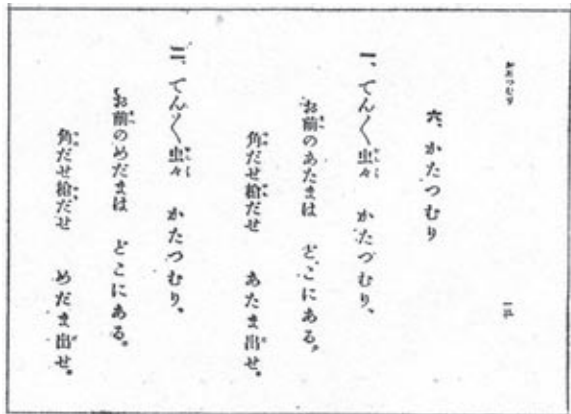 かたつむり
六、かたつむり
一、でん〱虫々　かたつむり、
お前のあたまは　どこにある。
角だせ槍だせ　あたま出せ。
二、でん〱虫々　かたつむり、
お前のめだまは　どこにある。
角だせ槍だせ　めだま出せ。